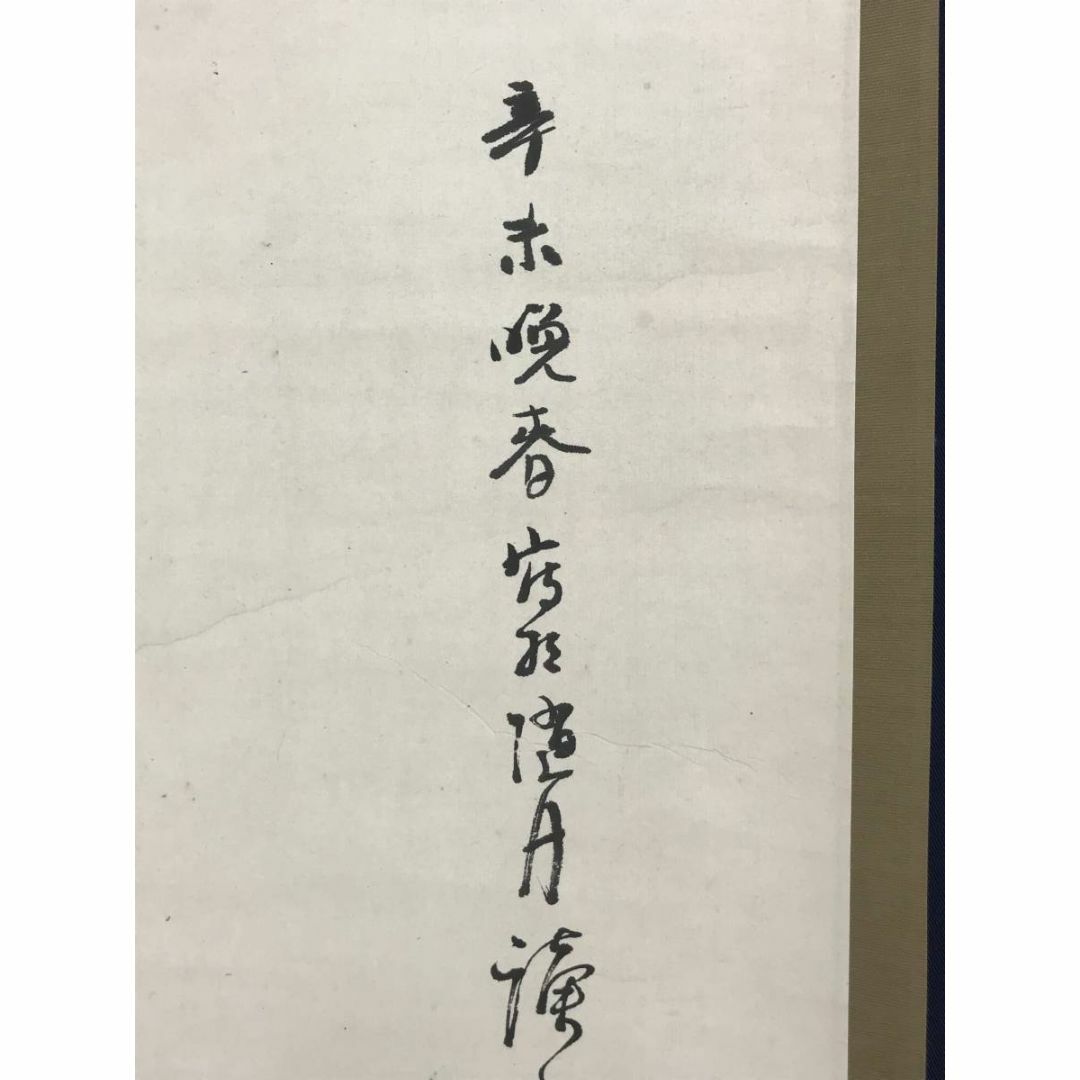 辛未晩春寫於隨月讀